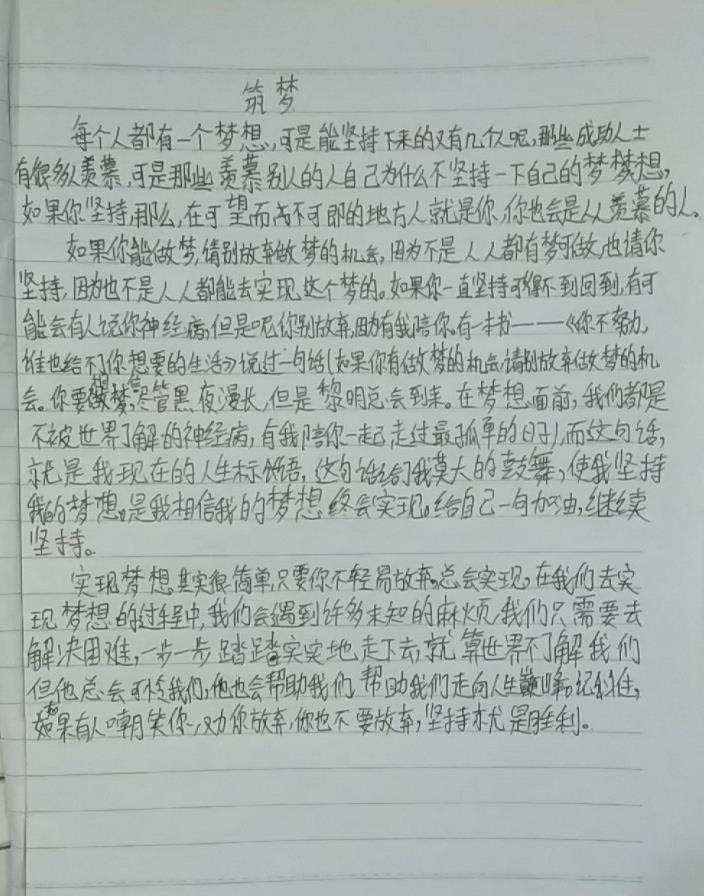 筑梦
每个人都有一个梦想,可是能坚持下来的又有几个人呢,那些成功人士
有很多人羡慕,可是那些羡慕别人的人自己为什么不坚持一下自己的梦梦想,
如果你坚持,那么,在可望而不可即的地方人就是你,你也会是人人羡慕的人。
如果你能做梦,请别放弃做梦的机会,因为不是人人都有梦可做,也请你
坚持,因为也不是人人都能去实现这个梦的。如果你一直坚持可得不到回到,有可
能会有人说你神经病,但是呢你别放弃,因为有我陪你。有一本书——《你不努力,
谁也给不了你想要的生活》说过一句话(如果你有做梦的机会,请别放弃做梦的机
会。你要相信,尽管黑夜漫长,但是黎明总会到来。在梦想面前,我们都是
不被世界了解的神经病,有我陪你一起走过最孤单的日子),而这句话,
就是我现在的人生标语,这句话给了我莫大的鼓舞,使我坚持
我的梦想。是我相信我的梦想终会实现。给自己一句加油,继续
坚持。
实现梦想其实很简单,只要你不轻易放弃,总会实现,在我们去实
现梦想的过程中,我们会遇到许多未知的麻烦,我们只需要去
解决困难,一步一步踏踏实实地走下去,就算世界不了解我们
但他总会可怜我们,他也会帮助我们帮助我们走向人生巅峰。记住,
如果有人嘲笑你,劝你放弃,你也不要放弃,坚持就是胜利。